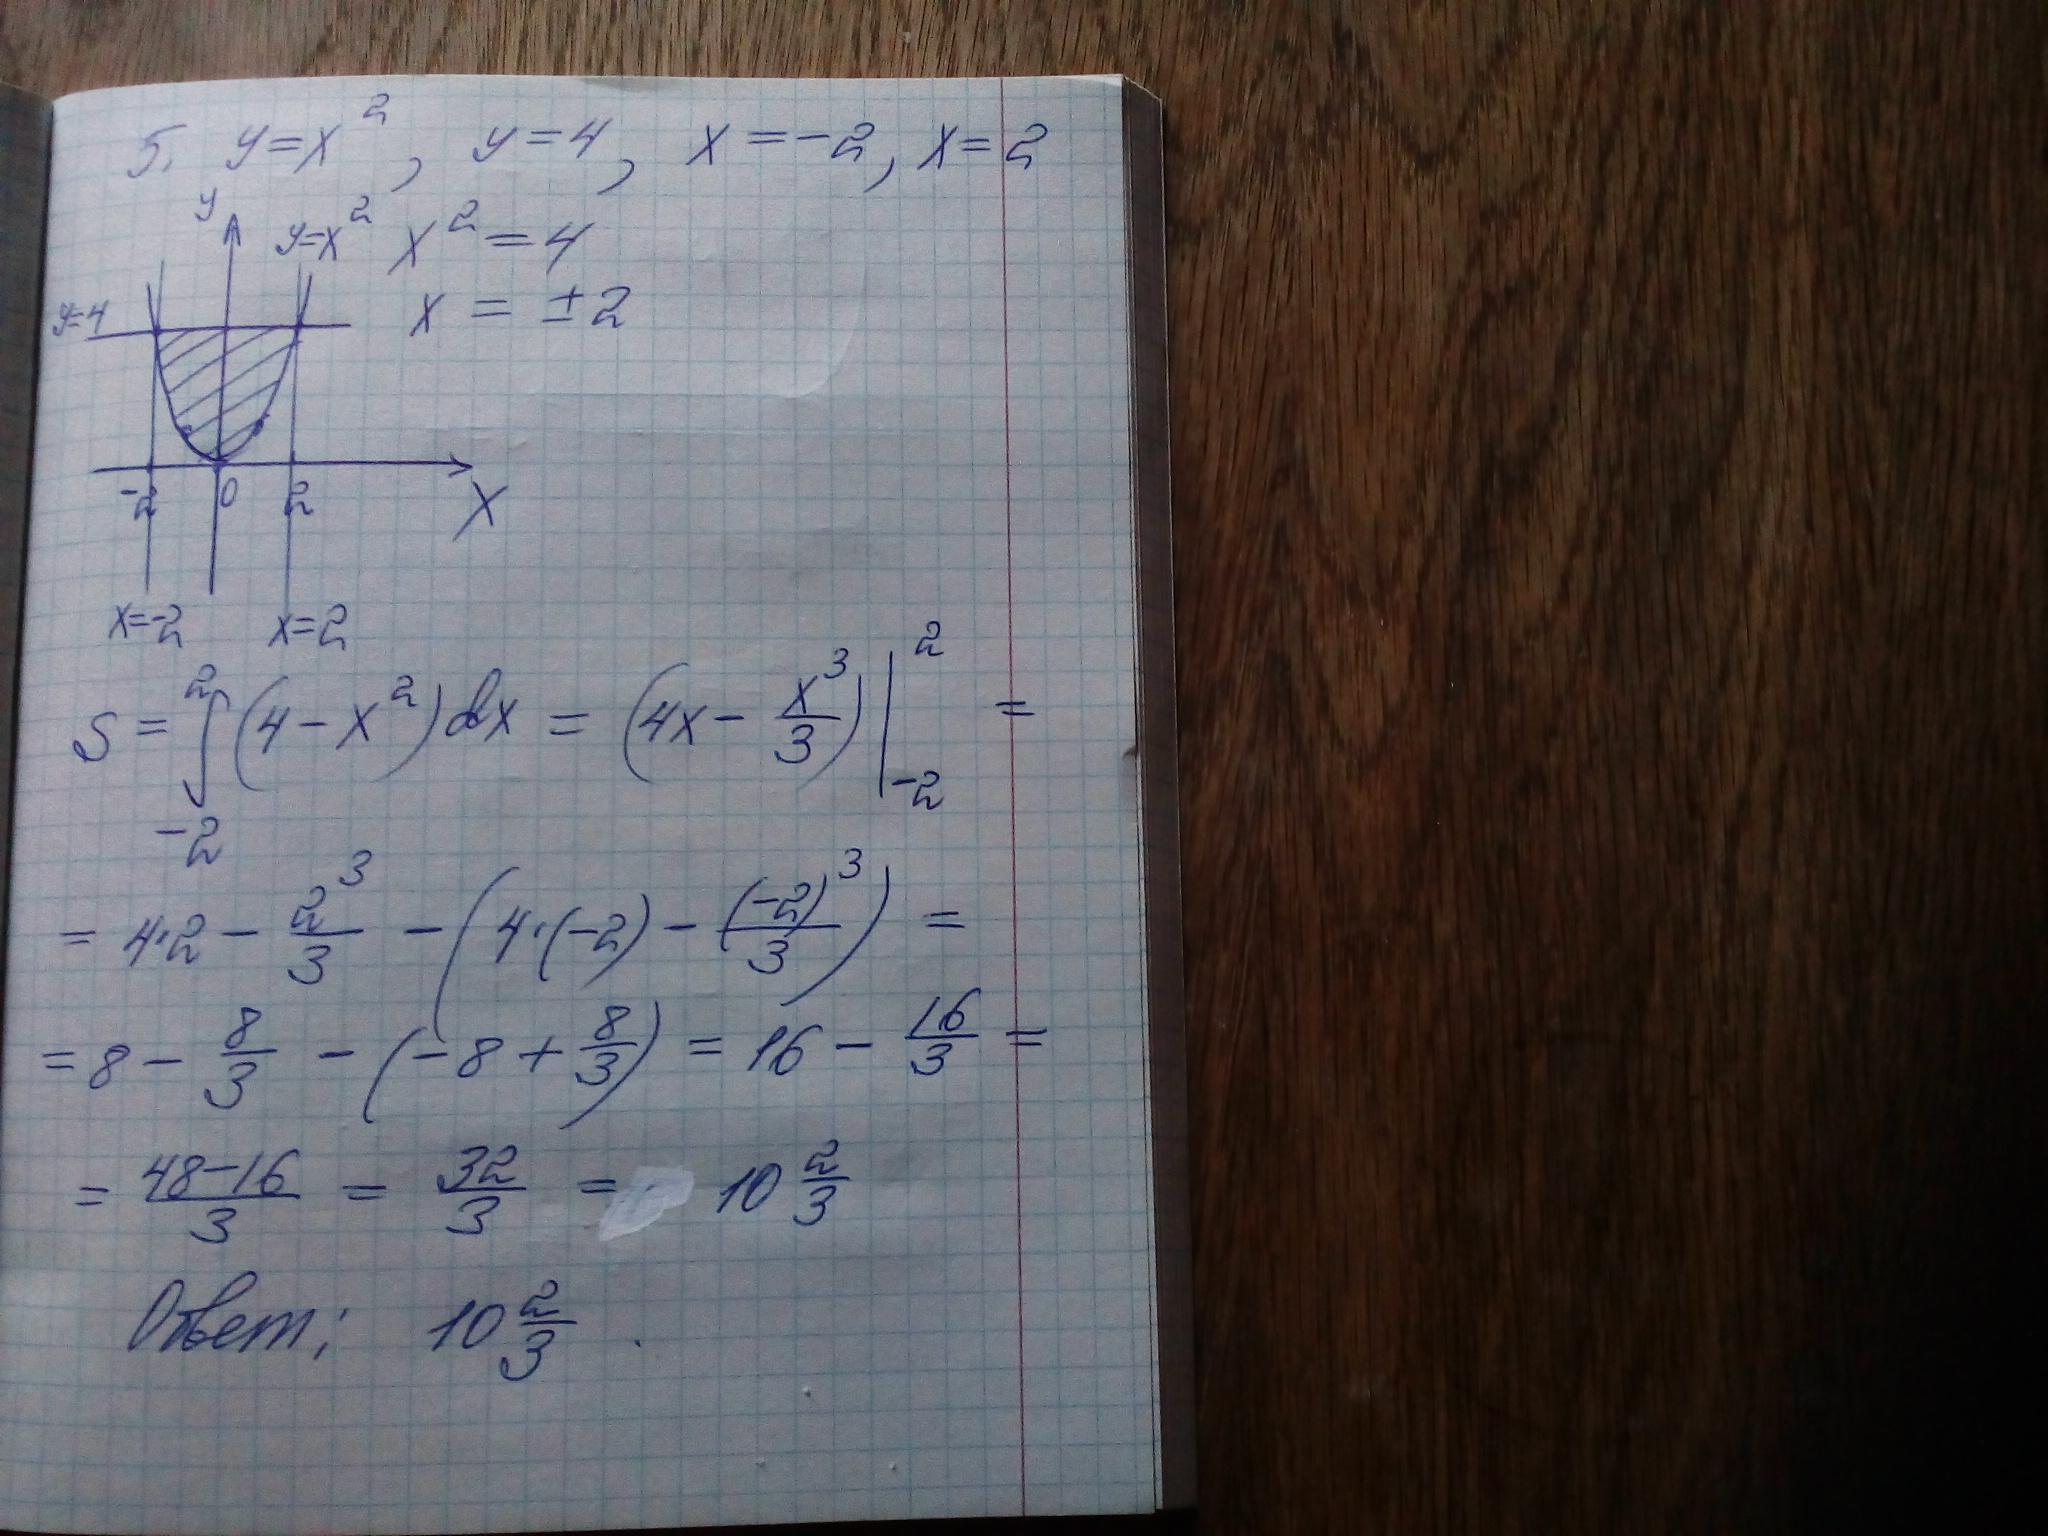 5. y=x², y=4, x=-2, x=2
y
y=x² x²=4
y=4 x=±2
-2 0 2 x
x=-2 x=2
S = ∫₋₂² (4-x²)dx = (4x - x³/3) |₋₂² =
= 4·2 - 2³/3 - (4·(-2) - (-2)³/3) =
= 8 - 8/3 - (-8 + 8/3) = 16 - 16/3 =
= 48-16/3 = 32/3 = 10 2/3
Ответ: 10 2/3.